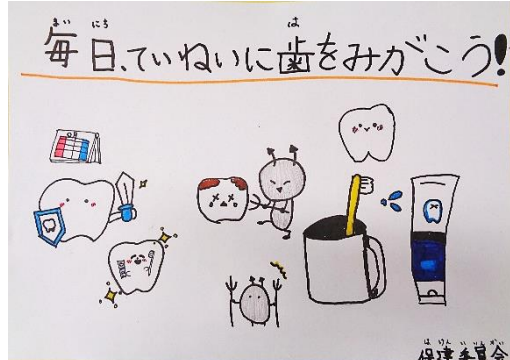 まい にち は
毎日、ていねいに歯をみがこう!
ほけんいいんかい
保健委員会